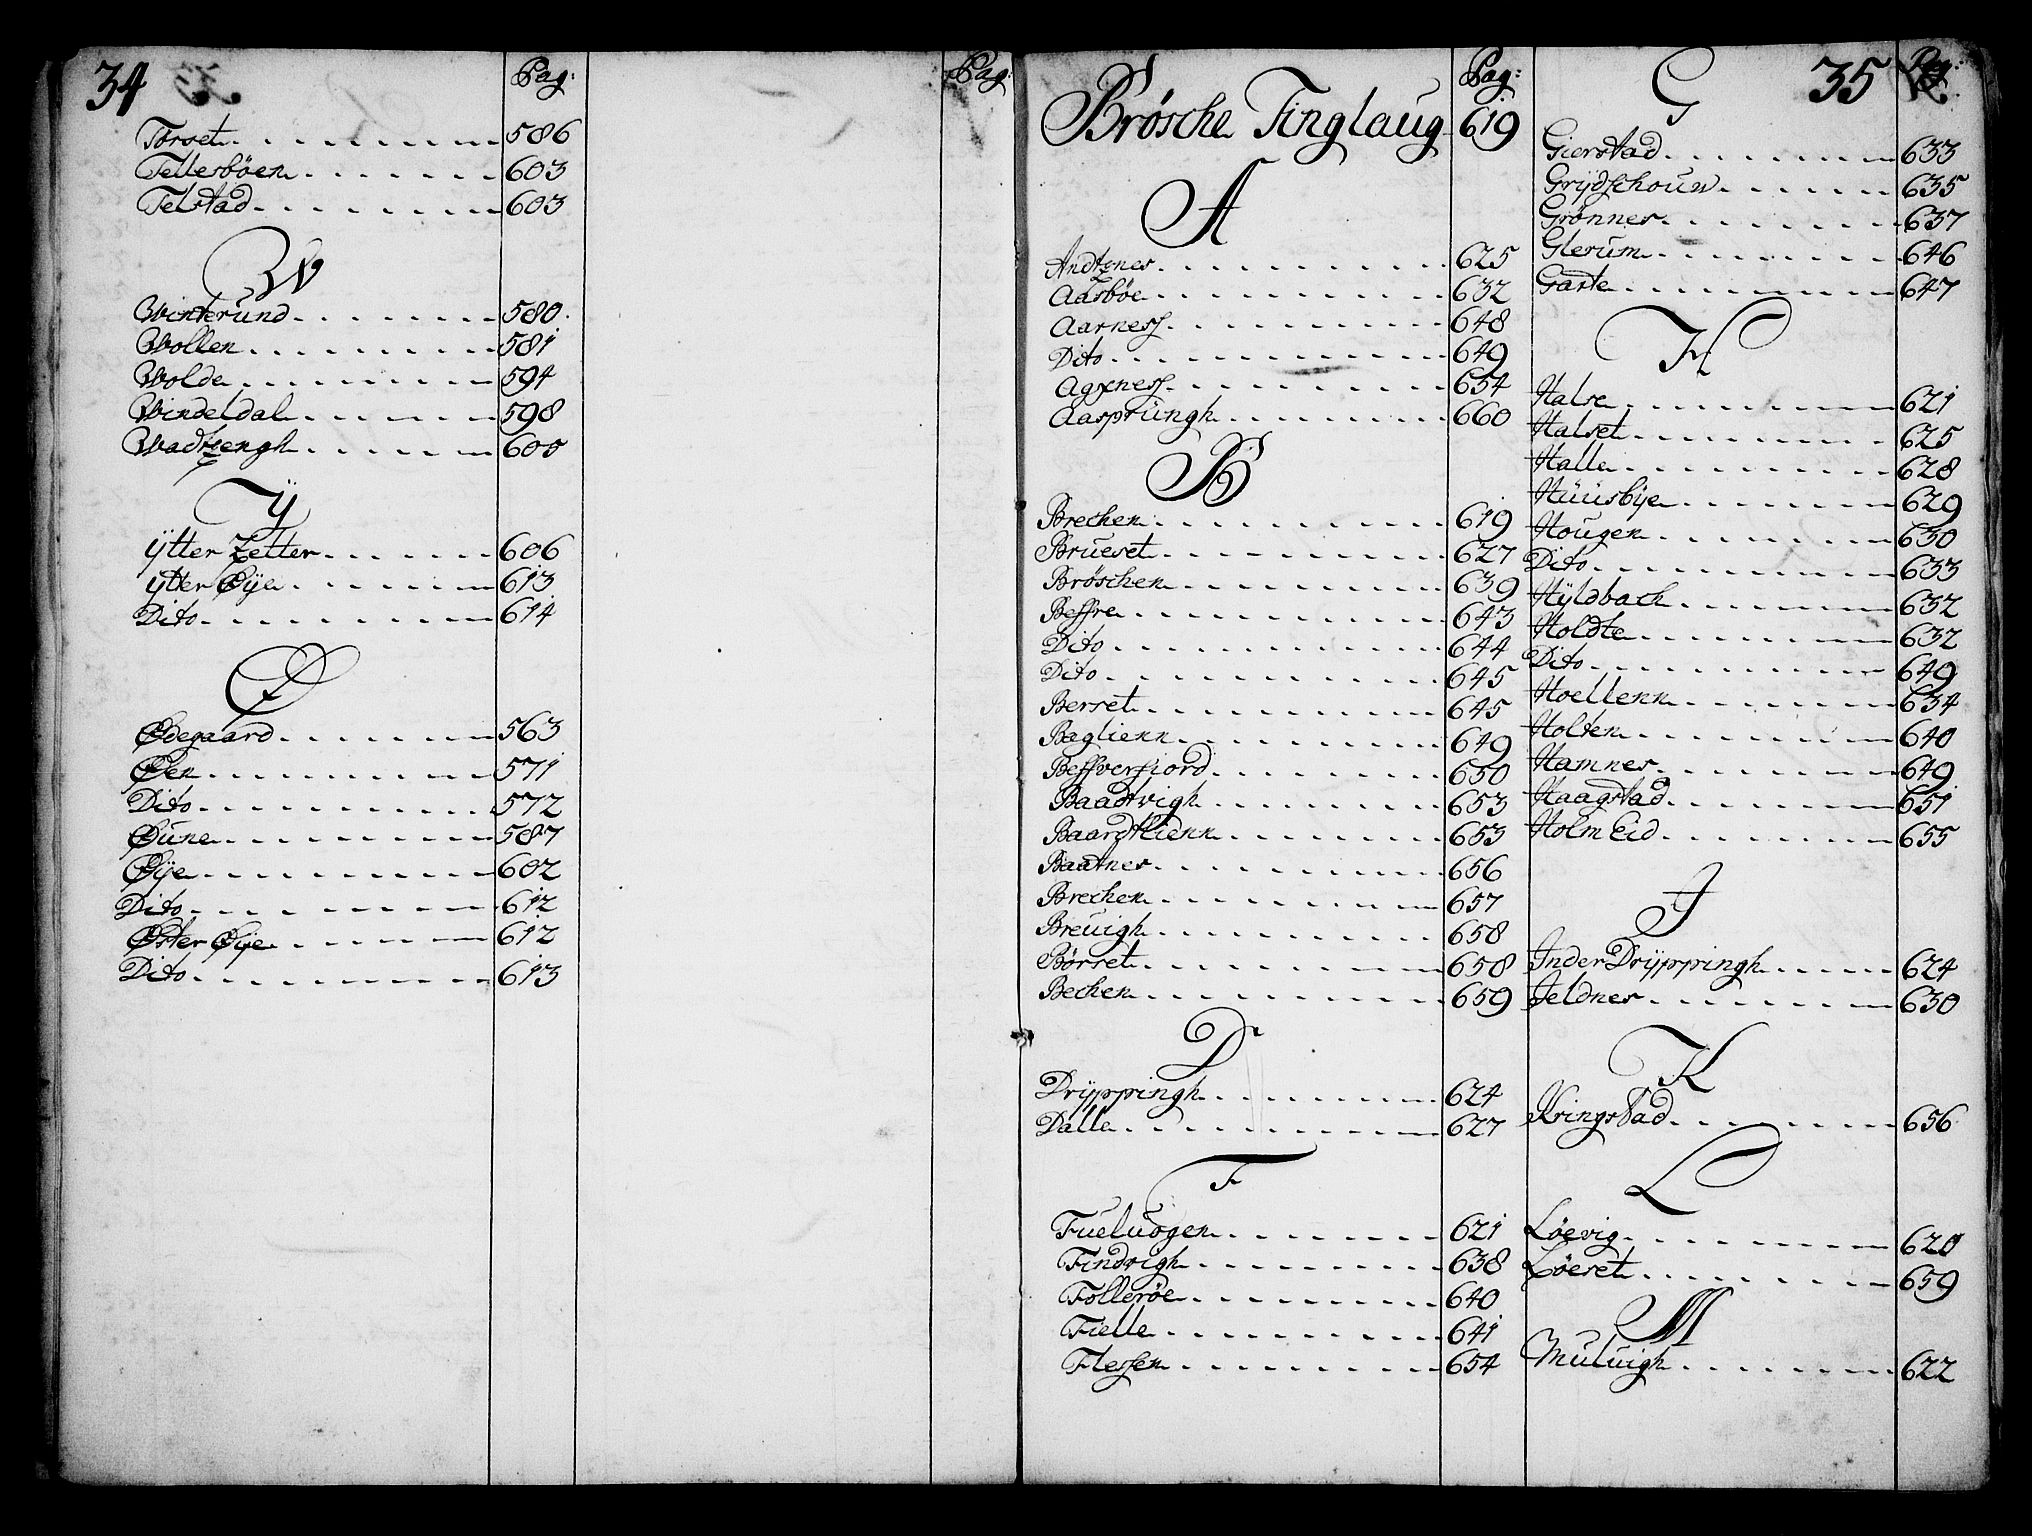 34
Pag:
Torset 586
Tellesbøen 603
Telstad 603
W
Winterund 580
Wollen 581
Wolde 594
Windeldal 598
Wadtzengh 605
Ÿ
Ÿtter Zetter 606
Ÿtter Øÿe 613
Dito 614
Ø
Ødegaard 563
Øen 571
Dito 572
Øune 587
Øÿe 602
Dito 612
Øster Øÿe 612
Dito 613
Pag:
Brøsche Tinglaug 619
Pag:
A
Andtznes 625
Aasbøe 632
Aarness 648
Dito 649
Agxness 654
Aasprüngh 660
B
Brechen 619
Brueset 627
Brøschen 639
Bessre 643
Dito 644
Dito 645
Berset 645
Baglienn 649
Bessversiord 650
Baadtvigh 653
Baardtlienn 653
Baatnes 656
Brechen 657
Breuigh 658
Børset 658
Bechen 659
D
Drÿppingh 624
Dalle 627
F
Fueluogen 621
Findvigh 638
Follerøe 640
Fielle 641
Flessen 654
35
Pag:
G
Gierstad 633
Grÿdschouw 635
Grønnes 637
Glerum 646
Garte 647
H
Halse 621
Halset 625
Halle 628
Hüüsbÿe 629
Hougen 630
Dito 633
Hÿldbach 632
Holdte 632
Dito 649
Hoellenn 634
Holten 640
Hamnes 649
Haagstad 651
Holm Eid 655
J
Inder Drÿppingh 624
Jeldnes 630
K
Kringstad 656
L
Løevig 620
Løeset 659
M
Muluigh 622